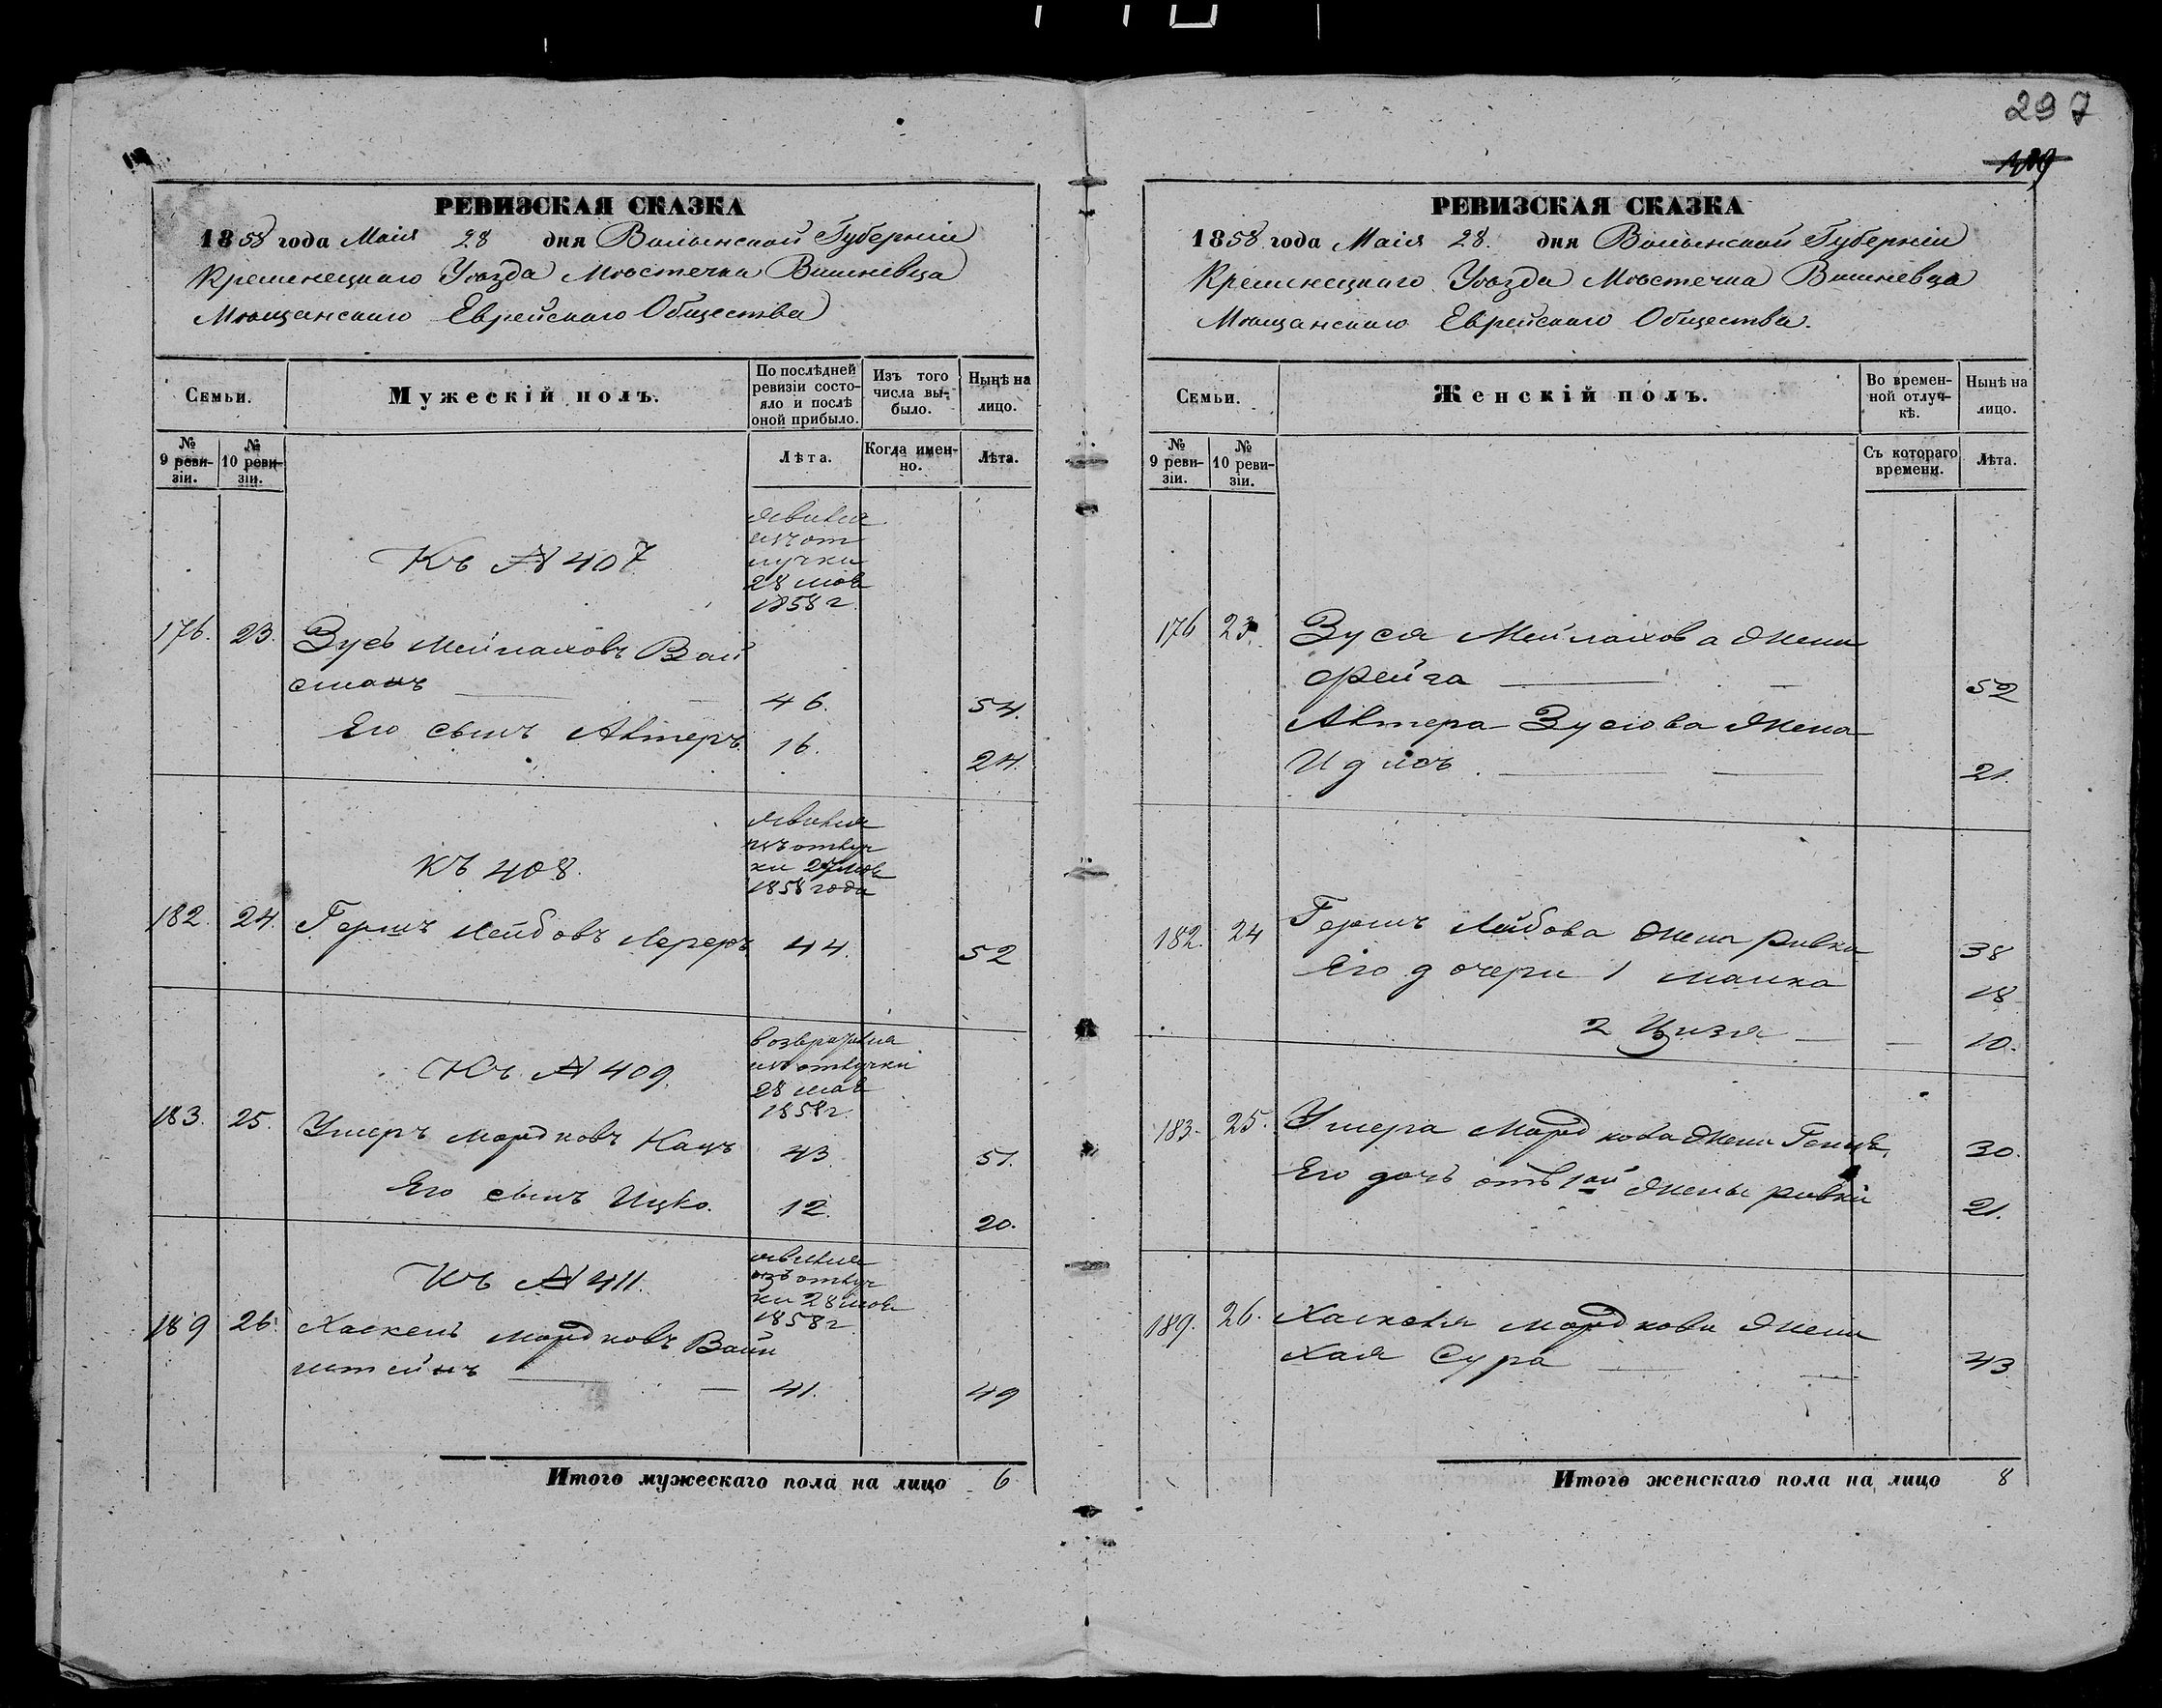 297
РЕВИЗСКАЯ СКАЗКА
1858 года Маія 28 дня Волынской Губерніи
Кременецкаго Уѣзда Мѣстечка Вишневца
Мѣщанскаго Еврейскаго Общества
Семьи.
Мужескій полъ.
По послѣдней ревизіи состояло и послѣ оной прибыло.
Изъ того числа выбыло.
Нынѣ на лицо.
№ 9 ревизіи.
№ 10 ревизіи.
Лѣта.
Когда именно.
Лѣта.
Къ № 407
явился
изъ от
лучки
28 мая
1858 г.
176. 23. Зусь Мейлаховъ Вай
сманъ 46. 54.
Его сынъ Алтеръ 16. 24.
Къ 408.
явился
изъ отлуч
ки 27 мая
1858 года
182. 24. Гершъ Лейбовъ Лереръ 44. 52
Къ № 409.
возвратился
изъ отлучки
28 мая
1858 г.
183. 25. Ушеръ Мордковъ Кацъ 43 51.
Его сынъ Ицко. 12. 20.
Къ № 411.
явился
изъ отлуч
ки 28 мая
1858 г
189 26. Хаскель Мордковъ Вайн
штейнъ 41. 49
Итого мужескаго пола на лицо 6
РЕВИЗСКАЯ СКАЗКА
1858 года Маія 28. дня Волынской Губерніи
Кременецкаго Уѣзда Мѣстечка Вишневца
Мѣщанскаго Еврейскаго Общества.
Семьи.
Женскій полъ.
Во временной отлучкѣ.
Нынѣ на лицо.
№ 9 ревизіи.
№ 10 ревизіи.
Съ котораго времени.
Лѣта.
176 23. Зуся Мейлахова жена
Фейга 52
Алтера Зусюва жена
21.
182. 24 Гершъ Лейбова жена Ривка 38
Его дочери 1 Малка 18
2 Цизя 10.
183. 25. Ушера Мордкова жена 30.
Его дочь отъ 1ой жены Ривки 21.
189. 26. Хаскеля Мордкова жена
Хая Сура 43
Итого женскаго пола на лицо 8